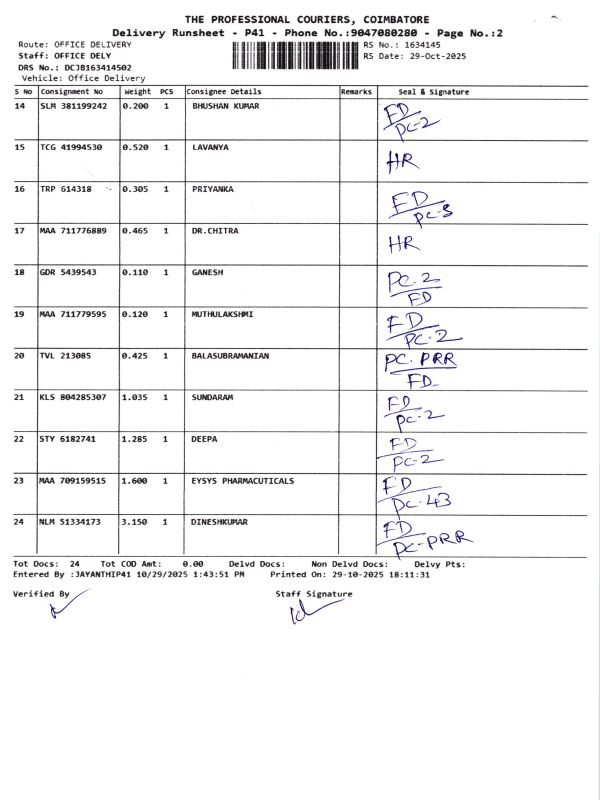 THE PROFESSIONAL COURIERS, COIMBATORE
Delivery Runsheet - P41 - Phone No.:9047080280 - Page No.:2
Route: OFFICE DELIVERY RS No.: 1634145
Staff: OFFICE DELY RS Date: 29-Oct-2025
DRS No.: DCJB163414502
Vehicle: Office Delivery
S No Consignment No Weight PCS Consignee Details Remarks Seal & Signature
14 SLM 381199242 0.200 1 BHUSHAN KUMAR FD
PC-2
15 TCG 41994530 0.520 1 LAVANYA HR
16 TRP 614318 0.305 1 PRIYANKA FD
PC-3
17 MAA 711776889 0.465 1 DR.CHITRA HR
18 GDR 5439543 0.110 1 GANESH PC.2
FD
19 MAA 711779595 0.120 1 MUTHULAKSHMI FD
PC-2
20 TVL 213085 0.425 1 BALASUBRAMANIAN PC. PRR
FD
21 KLS 804285307 1.035 1 SUNDARAM FD
PC-2
22 STY 6182741 1.285 1 DEEPA FD
PC-2
23 MAA 709159515 1.600 1 EYSYS PHARMACUTICALS FD
PC-43
24 NLM 51334173 3.150 1 DINESHKUMAR FD
PC-PRR
Tot Docs: 24 Tot COD Amt: 0.00 Delvd Docs: Non Delvd Docs: Delvy Pts:
Entered By :JAYANTHIP41 10/29/2025 1:43:51 PM Printed On: 29-10-2025 18:11:31
Verified By Staff Signature